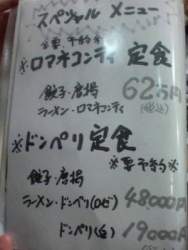 スペシャル メニュー
※要予約※
※ロマネコンティ定食
餃子・唐揚
ラーメン・ロマネコンティ
62万円
(税込)
※ドンペリ定食
※要予約※
餃子・唐揚
ラーメン・ドンペリ(ロゼ) 48000円
ドンペリ(白) 19000円